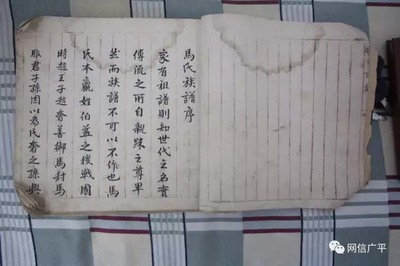 馬氏族譜序
家有祖譜則知世代之名實
傳流之所自親疎之尊卑
然而族譜不可以不作也馬
氏本嬴姓伯益之後戰國
時趙王子趙奢善御馬封馬
服君子孫因以為氏奢之孫興
网信广平